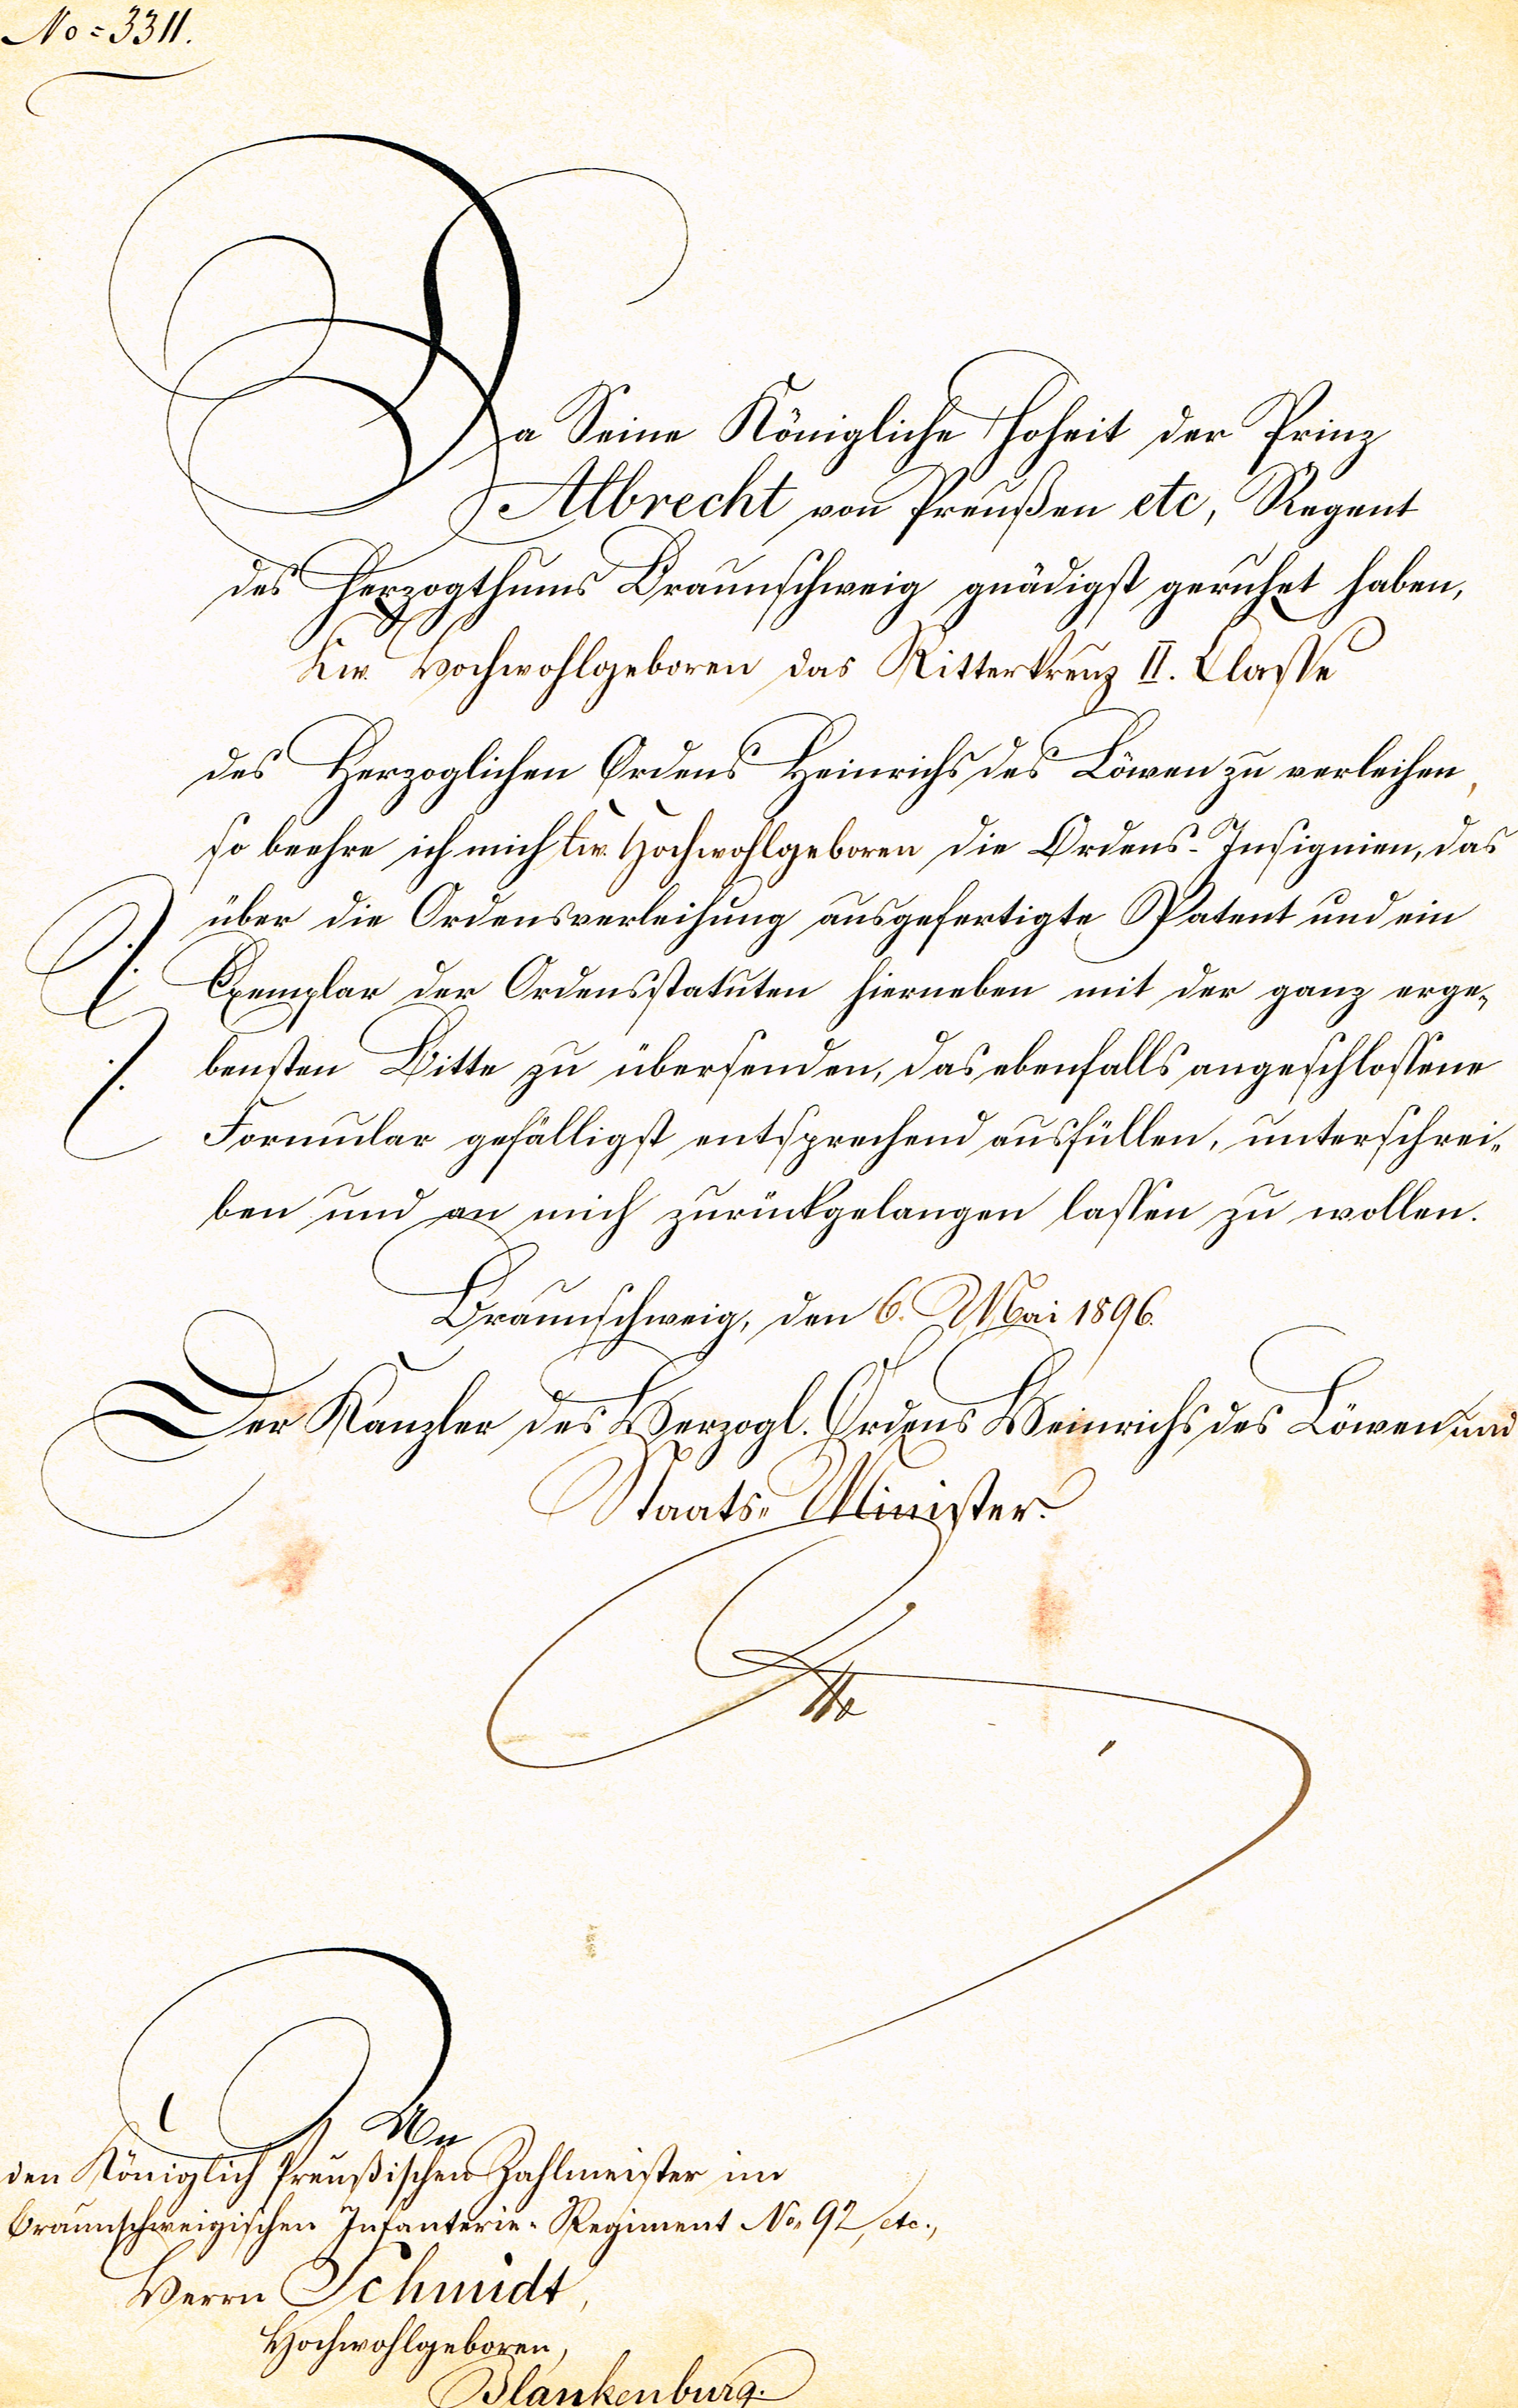 No = 3311.
Da Seine Königliche Hoheit der Prinz
Albrecht von Preußen etc, Regent
des Herzogthums Braunschweig gnädigst geruhet haben,
Ew. Hochwohlgeboren das Ritterkreuz II. Classe
des Herzoglichen Ordens Heinrichs des Löwen zu verleihen,
so beehre ich mich Ew. Hochwohlgeboren die Ordens-Insignien, das
über die Ordensverleihung ausgefertigte Patent und ein
Exemplar der Ordensstatuten hierneben mit der ganz erge-
bensten Bitte zu übersenden, das ebenfalls angeschlossene
Formular gefälligst entsprechend ausfüllen, unterschrei-
ben und an mich zurückgelangen lassen zu wollen.
Braunschweig, den 6. Mai 1896.
Der Kanzler des Herzogl. Ordens Heinrichs des Löwen und
Staats-Minister.
Otto
An
den Königlich Preußischen Zahlmeister im
Braunschweigischen Infanterie-Regiment No. 92, etc.,
Herrn Schmidt,
Hochwohlgeboren,
Blankenburg.